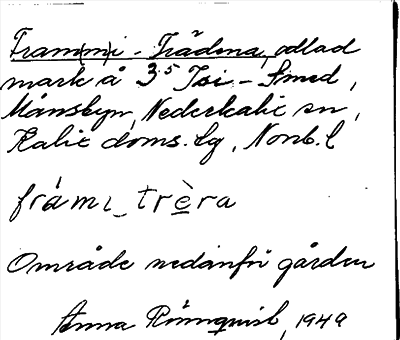 Fram(m)i-Trädena, odlad
mark å 3⁵ Isi-Smed,
Månsbyn, Nederkalix sn,
Kalix doms. lg, Norrb. l
frámı_trèra
Område nedanför gården
Anna Rönnquist, 1949